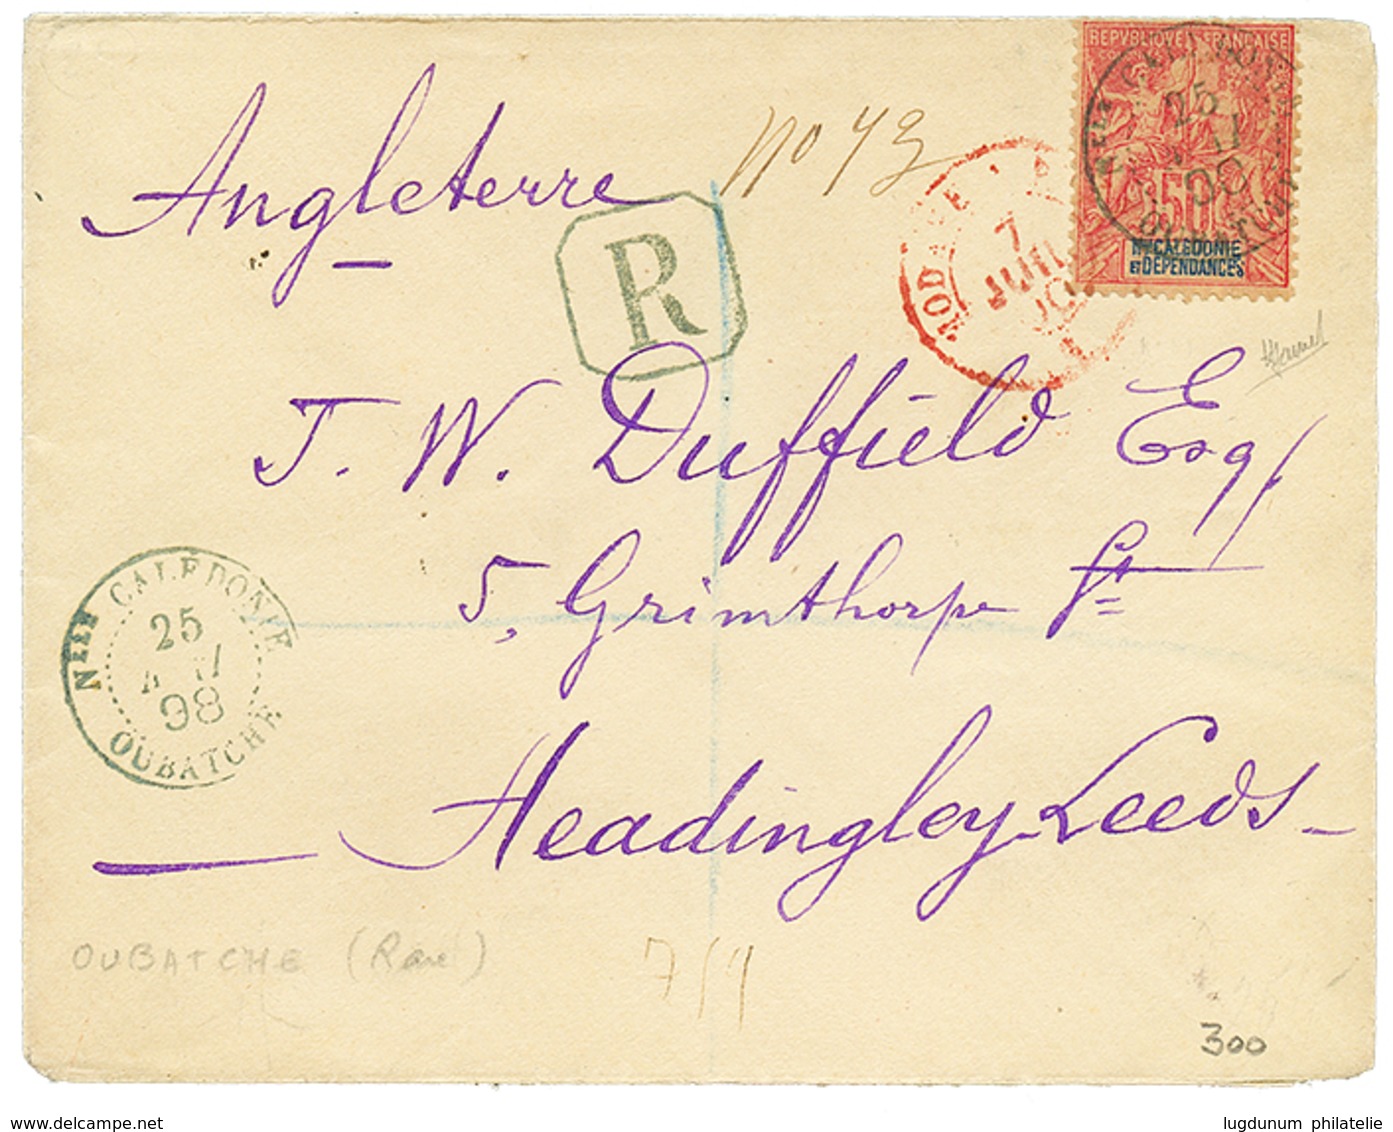 REPVBLIQVE FRANÇAISE
25
98
50
OUBATCHE
Nlle CALÉDONIE
ET DÉPENDANCES
Angleterre
no 43
R
7
JUIL
J. W. Duffield Esq/
5, Grimthorpe St
Headingley-Leeds-
Nlle CALÉDONIE
25
98
OUBATCHE
OUBATCHE (Rare)
7/9
300
www.delcampe.net
lugdunum philatelie